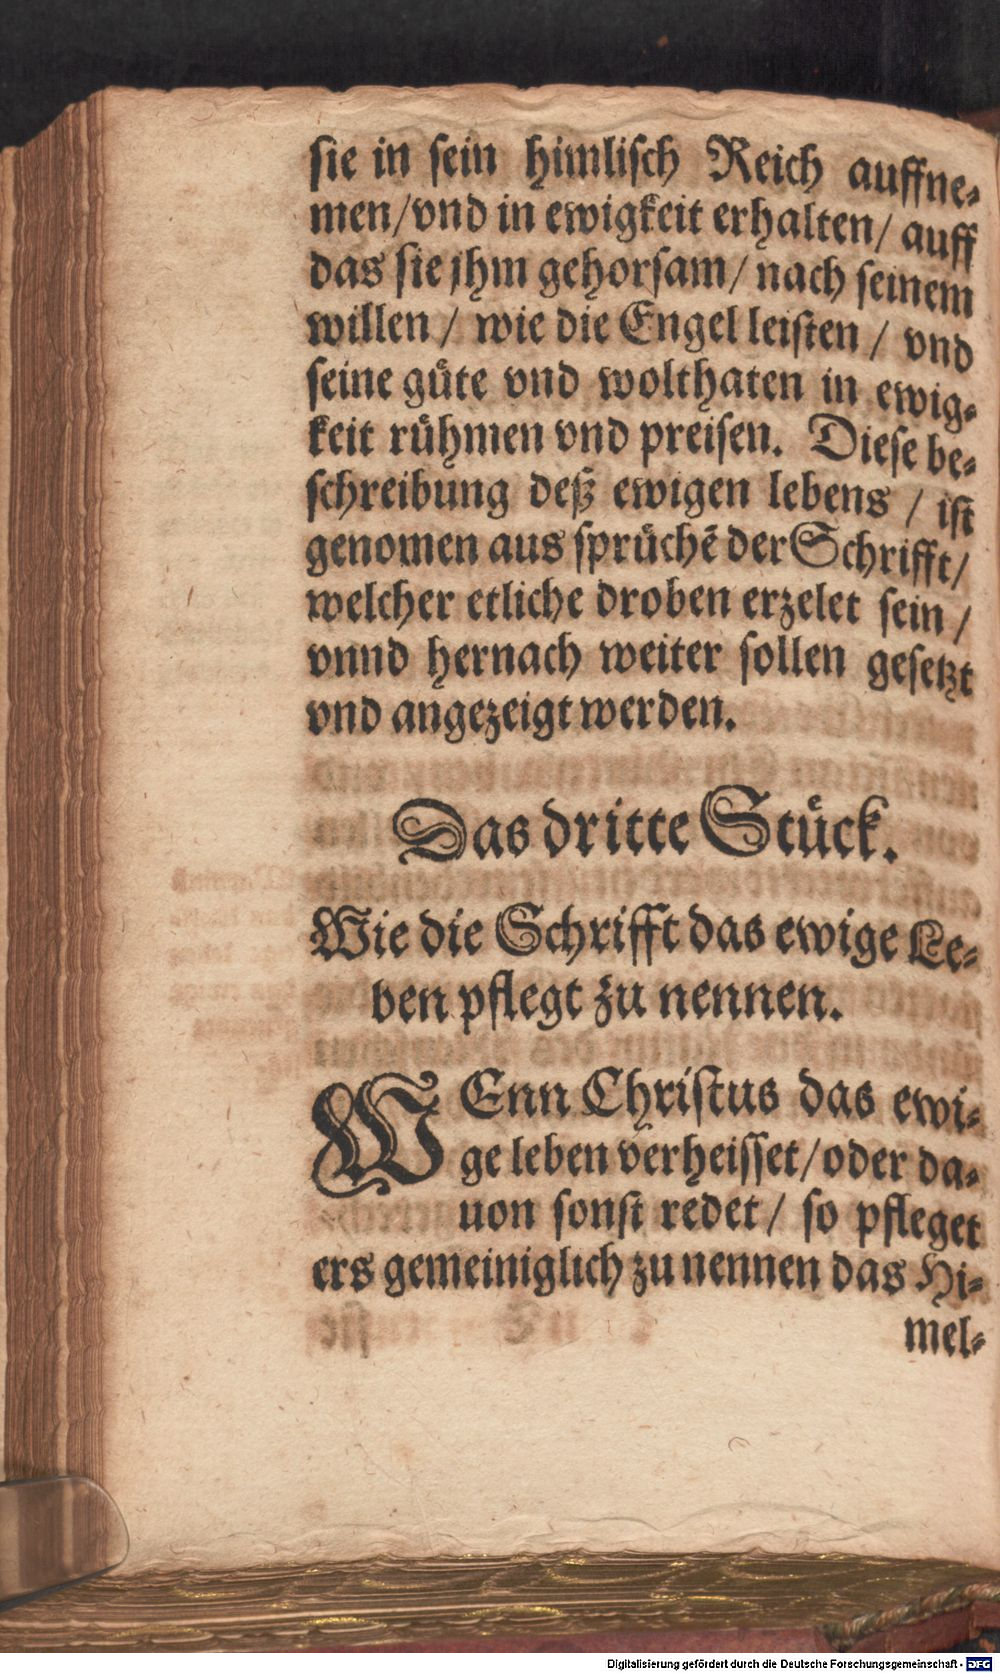 sie in sein himlisch Reich auffne-
men/vnd in ewigkeit erhalten/ auff
das sie jhm gehorsam/ nach seinem
willen / wie die Engel leisten / vnd
seine guͤte vnd wolthaten in ewig-
keit ruͤhmen vnd preisen. Diese be-
schreibung deß ewigen lebens / ist
genomen aus spruͤchẽ der Schrifft/
welcher etliche droben erzelet sein /
vnnd hernach weiter sollen gesetzt
vnd angezeigt werden.
Das dritte Stuͤck.
Wie die Schrifft das ewige Le-
ben pflegt zu nennen.
WEnn Christus das ewi-
ge leben verheisset/oder da-
uon sonst redet/ so pfleget
ers gemeiniglich zu nennen das Hi-
mel-
Digitalisierung gefördert durch die Deutsche Forschungsgemeinschaft - DFG